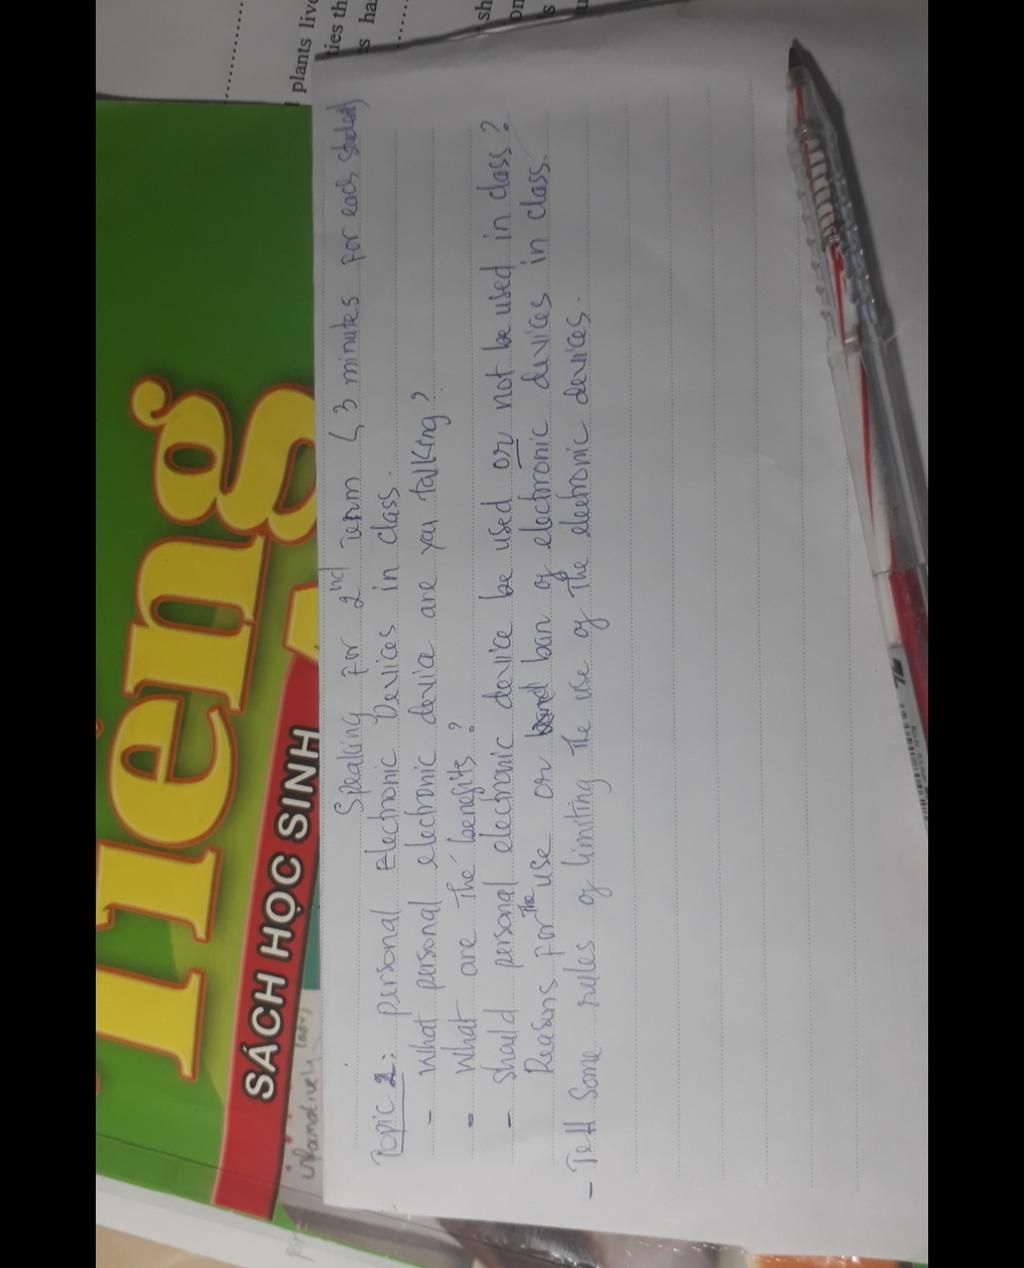 Speaking for 2nd Term ( 3 minutes for each student)
Topic 2: personal Electronic Devices in class.
- What personal electronic device are you talking?
- What are the benefits?
- Should personal electronic device be used or not be used in class?
Reasons for the use or ban of electronic devices in class.
- Tell some rules of limiting the use of the electronic devices.
Tieng
A
SÁCH HỌC SINH
plants live
ties th
s ha
sh
on
s